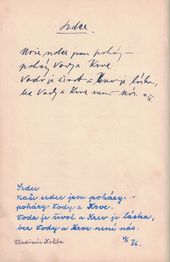 Srdce.
Naše srdce jsou poháry –
poháry Vody a Krve
Voda je život a Krev je láska,
bez Vody a Krve není nás.
Srdce
Naše srdce jsou poháry -
poháry Vody a Krve.
Voda je život a Krev je láska,
bez Vody a Krve není nás.
Vladimír